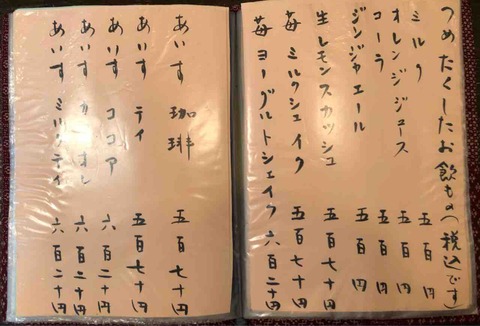 つめたくしたお飲もの(税込です)
ミルク 五百円
オレンジジュース 五百円
コーラ 五百円
ジンジャエール 五百円
生レモンスカッシュ 五百七十円
苺ミルクシェイク 五百七十円
苺ヨーグルトシェイク 六百二十円
あいす 珈琲 五百七十円
あいす ティ 五百七十円
あいす ココア 六百二十円
あいす カフェオレ 六百二十円
あいす ミルクティ 六百二十円